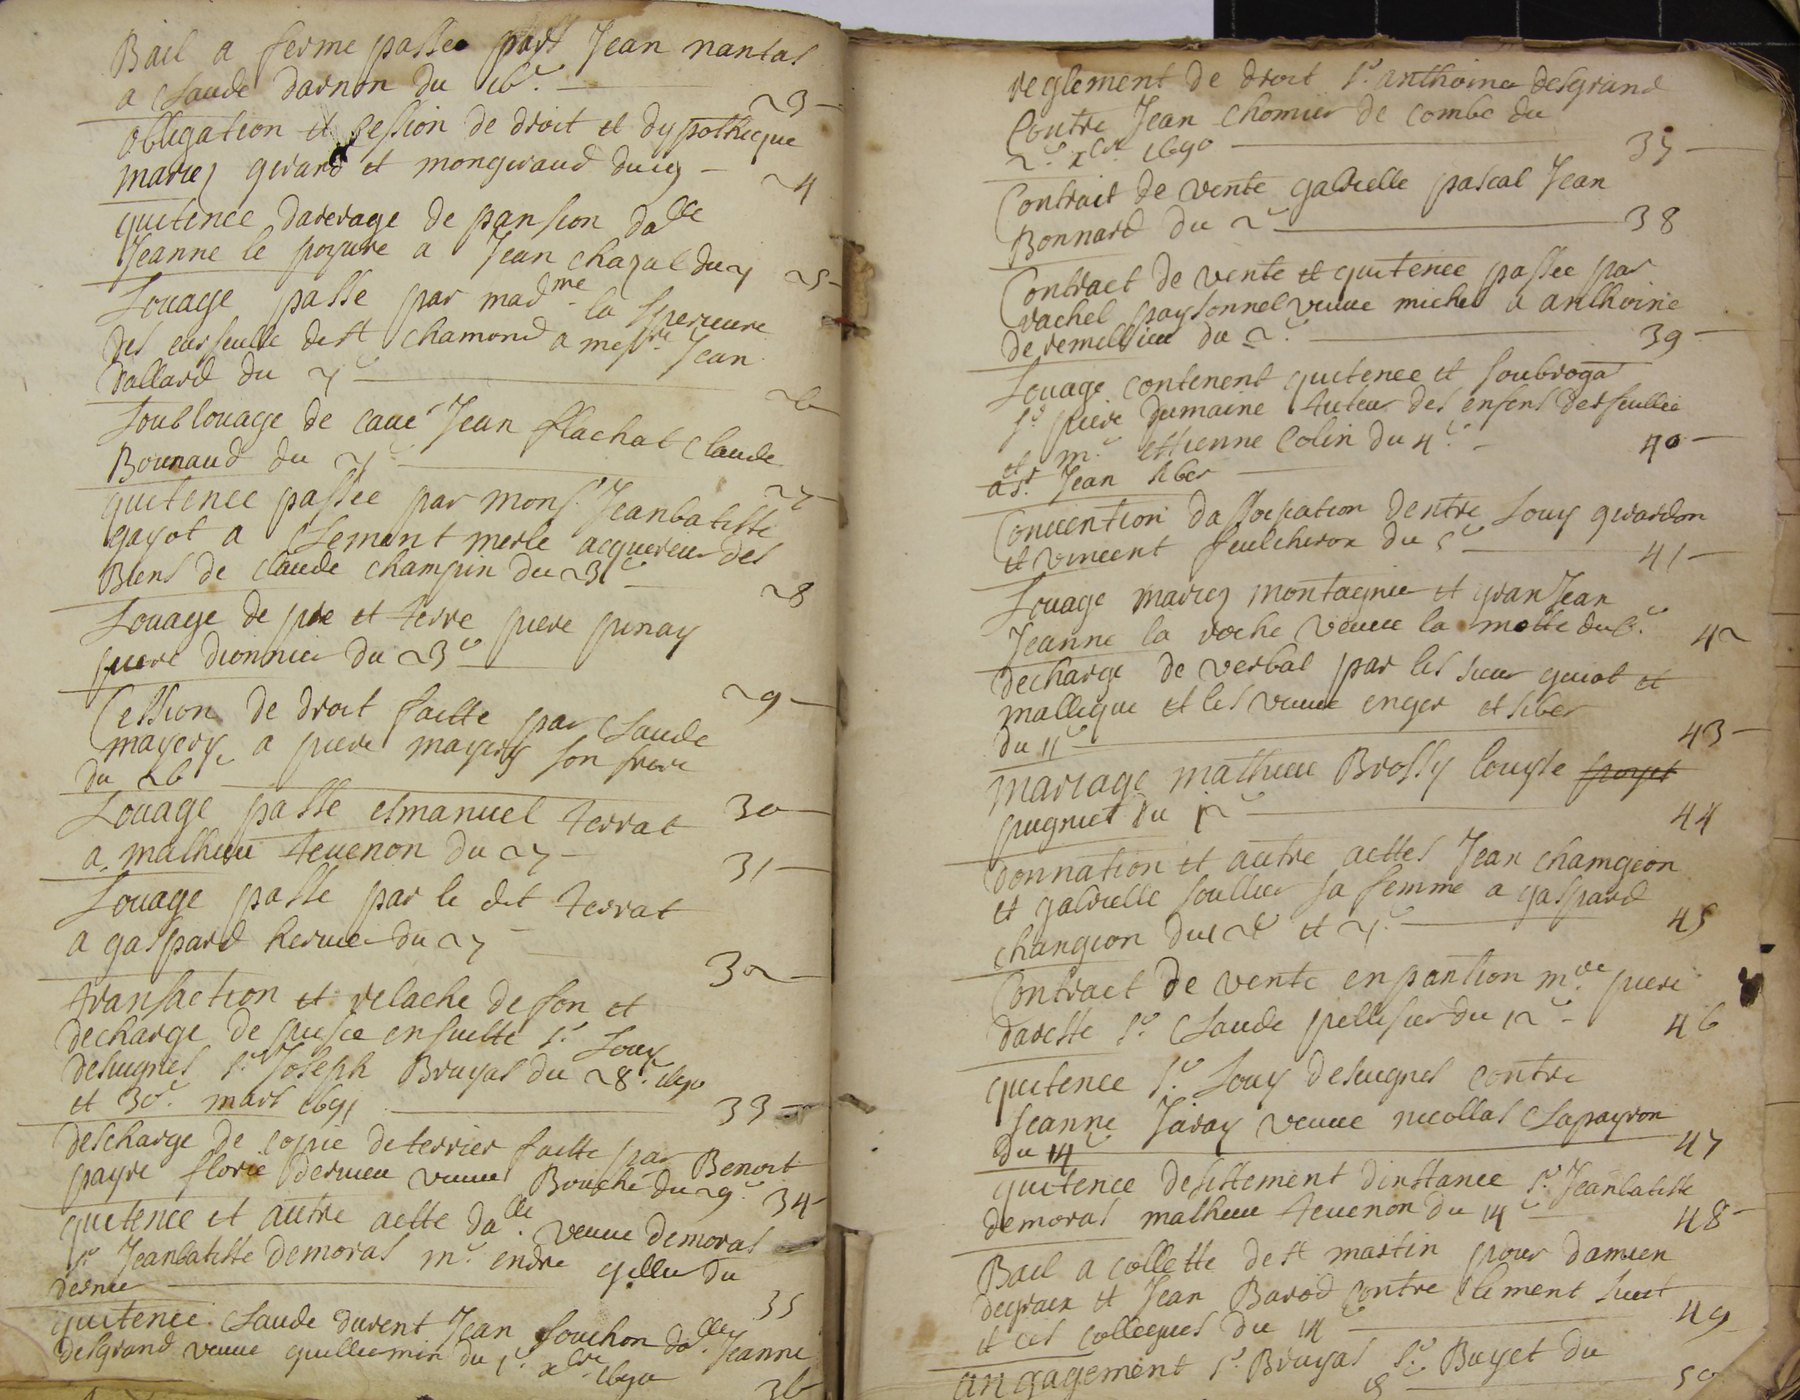 Bail a ferme passee part Jean nantas
a Claude darnon du 16e 23
obligation et cession de droit et dypotheque
mariez girard et mongiraud du 19 24
quitence darerage de pansion dalle
Jeanne le poyure a Jean chazal du 21 25
Louage passe par madme la superieure
des ursseulle de st chamond a messre Jean
Vallard du 26
Soublouage de caue Jean flachat Claude
Bounaud du 27
quitence passée par monsr Jeanbatiste
gayot a Clement merle acquereur des
Biens de Claude champin du 23e 28
Louage de pre et terre piere pinay
piere dionnier du 23e
29
Cession de droit faitte par Claude
mayery a piere mayery son frere
du 26e 30
Louage passe esmanuel terrat
a mathieu teuenon du 27 31
Louage passe par le dit terrat
a gaspard heruier du 27
32
transaction et relache de fon et
decharge de ensuitte Sr Louy
desuignes Sr Joseph Bruyas du 28e 1690
et 30e mars 1691 33
descharge de copie de terrier faitte par Benoit
payre florie derieu veuue Bouché du 29e 34
quitence et autre actte dalle veuue demoras
Sr Jeanbatiste demoras mr endre gillier du
dernier 35
quitence Claude durent Jean souchon dalle Jeanne
desgrand veuue guilliemin du 1r xbre 1690 36
reglement de droit Sr anthoine desgrand
Contre Jean Chomier de combe du
2e xbre 1690 37
Contrait de vente gabrielle pascal Jean
Bonnard du 2e 38
Contract de vente et quitence passée par
rachel paysonnel veuue michel a anthoine
de remillieu du 2e 39
Louage contenent quitence et soubrogat
Sr piere dumaine tuteur des enfens
et mr ettienne Colin du 4e 40
a Sr Jean siber
Conuention dassosiation dentre Louy girardon
et vincent feulcheron du 5e 41
Louage mariez montagnier et granJean
Jeanne la roche veuue la motte du 6e 42
decharge de verbal par les sieur guiot et
mallique et les veuue enger et siber
du 11e 43
mariage mathieu Brossy Louyse poyet
pugniet du 12e 44
donnation et autre acttes Jean changeon
et gabrielle soullier sa femme a gaspard
changeon du 12e et 45
Contract de vente en pantion mre piere
dareste Sr Claude pellisier du 12e 46
quitence Sr Louy desuignes contre
Jeanne Jaray veuue nicollas Clapayron
du 14e 47
quitence desistement dinstance Sr Jeanbatiste
demoras mathieu teuenon du 14e 48
Bail a collette de st martin pour damien
degraix et Jean Barod contre Clement
et ces collegues du 14e 49
angagement Sr Bruyas Sr Buyet du
18 50